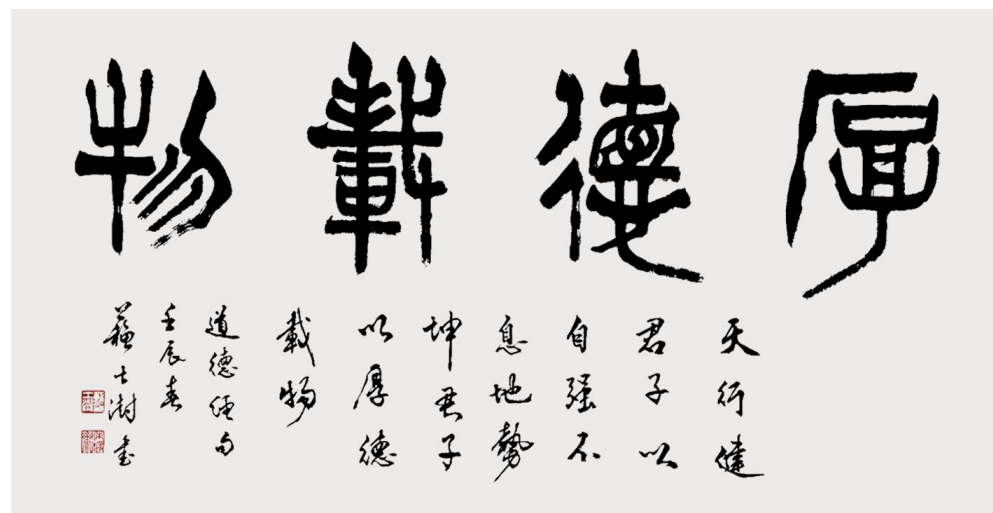 厚德載物
天行健
君子以
自强不
息地勢
坤君子
以厚德
載物
道德經句
壬辰春
蘇士澍書